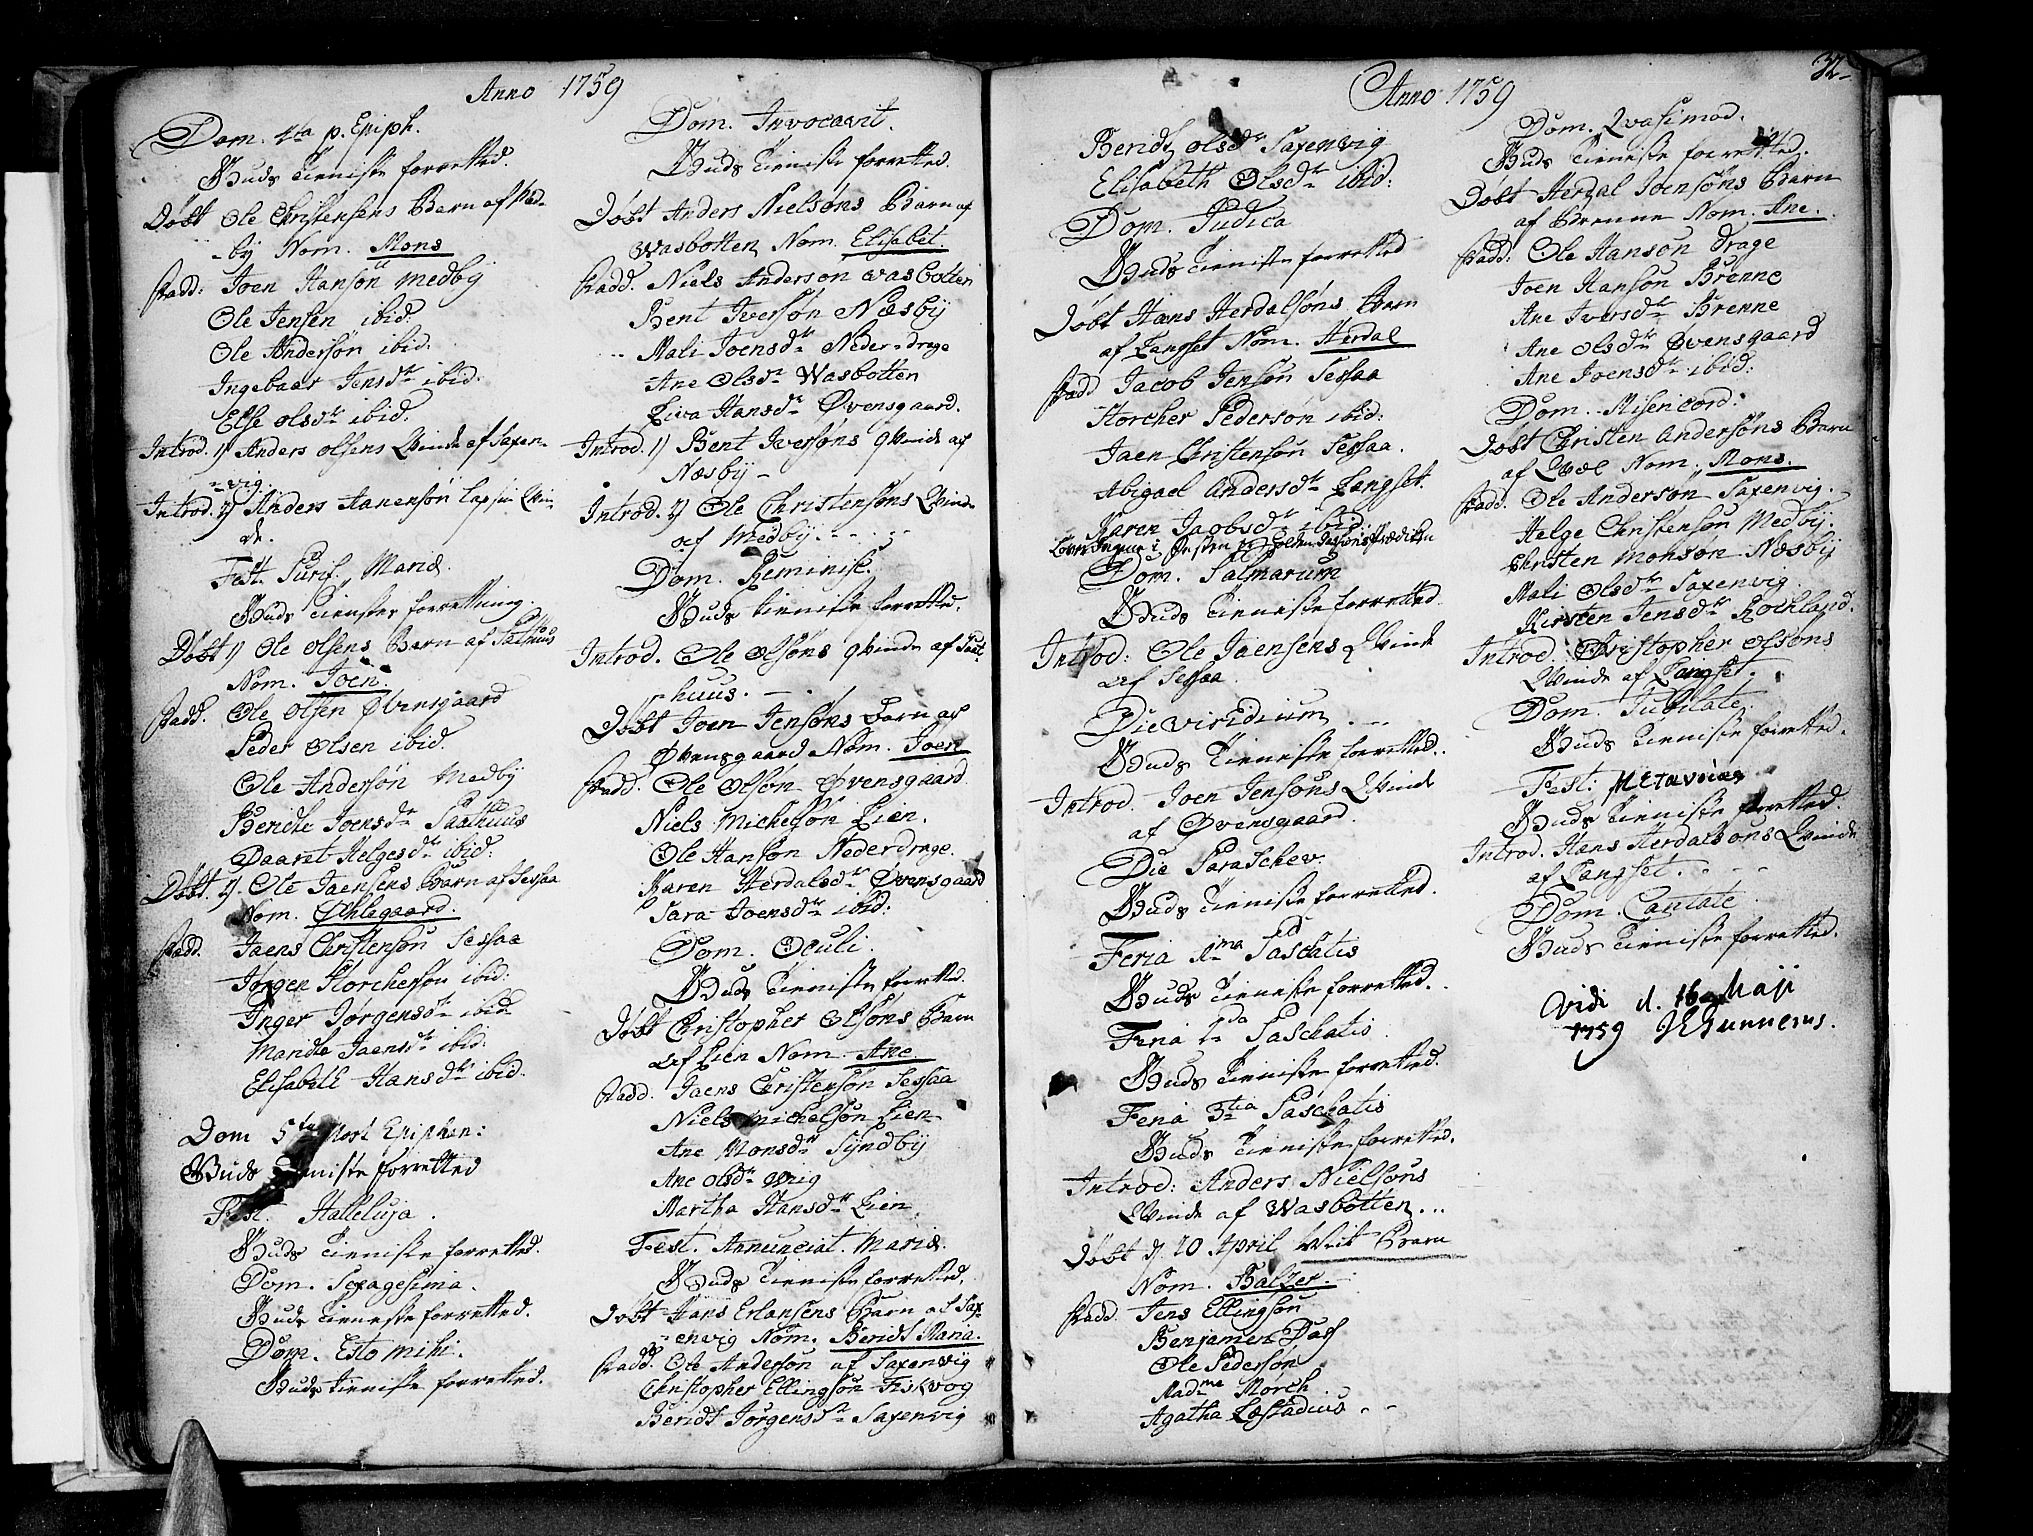 Anno 1759
Dom. 4ta p. Epiph.
Guds Tieniste forretted.
Døbt Ole Christensens Barn af Med-
-by Nom. Mons
Fadd: Joen Hansøn Medby
Ole Jensen ibid:
Ole Andersøn ibid.
Ingebaar Jensdr ibid:
Else Olsdr ibid.
Introd. 1) Anders Olsens Qvinde af Saxen-
-vig.
Introd. 2) Anders Aanensøn Lap sin Qvin-
de.
Fest. Purif. Mariæ.
Guds Tienstes forretning.
Døbt 1) Ole Olsens Barn af Salthuus
Nom. Joen.
Fadd. Ole Olsen Øvensgaard
Peder Olsen ibid.
Ole Andersøn Medby
Beridte Joensdr Saalthuus
Daaret Helgesdr ibid:
Døbt. 2). Ole Jaensens Barn af Sessaa
Nom. Øhlegaard.
Fadd. Jaens Christensøn Sessaa
Jørgen Storchersøn ibid:
Inger Jørgensdr ibid
Maridte Jaensdr ibid:
Elisabeth Hansdr ibid.
Dom 5te Post Epiphan:
Guds Tieniste forretted
Fest. Halleluja.
Guds Tieniste forretted.
Dom. Sexagesima.
Guds Tieneste forretted.
Dom. Esto mihi.
Guds Tieniste forretted.
Dom. Invocavit.
Guds Tieniste forretted.
Døbt Anders Nielsøns Barn af
Wasbotten Nom. Elisabet.
Fadd. Niels Andersøn Wasbotten
Bent Iversøn Næsby
Mali Joensdr Neder-drage
Ane Olsdr Wasbotten
Liva Hansdr Øvensgaard.
Introd. 1) Bent Iversøns Qvinde af
Næsby -
Introd. 2) Ole Christensøns Qvinde
af Medby.
Dom. Reminisc.
Guds Tieniste forretted.
Introd. Ole Olsøns Qvinde af Salt-
huus. -
Døbt Joen Jensøns Barn af
Øvensgaard Nom. Joen
Fadd. Ole Olsøn Øvensgaard
Niels Michelsøn Lien.
Ole Hansøn Nederdrage.
Karen Herdalsdr Øvensgaard
Sara Joensdr ibid:
Dom. Oculi.
Guds Tieniste forretted.
Døbt Christopher Olsøns Barn
af Lien Nom. Ane
Fadd. Jaens Christensøn Sessaa
Niels Michelsøn Lien
Ane Monsdr Syndby
Ane Olsdr Wiig
Martha Hansdr Lien.
Fest. Annunciat. Mariæ.
Guds Tieniste forretted.
Døbt Hans Erlansens Barn af Sax-
-envig Nom. Beridt Maria.
Fadd. Ole Andersøn af Saxenvig
Christopher Ellingsøn Fiskvog
Beridt Jørgensdr Saxenvig
Anno 1759
32
Beridt Olsdr Saxenvig
Elisabeth Olsdr ibid:
Dom. Judica
Guds Tieniste forretted
Døbt Hans Herdalsøns Barn
af Langset Nom. Herdal
Fadd Jacob Jensøn Sessaa
Storcher Pedersøn ibid:
Jaen Christensøn Sessaa.
Abigael Andersdr Langset.
Karen Jacobsdr ibid
Dom. Palmarum
Guds Tieniste forretted
Introd: Ole Jaensens Qvinde
af Sessaa.
Die viridium
Guds Tieneste forretted.
Introd. Joen Jensøns Qvinde
af Øvensgaard.
Die Paraschev.
Guds Tieniste forretted.
Feria 1ma Paschatis
Guds Tieneste forretted.
Feria 2da Paschatis.
Guds Tieniste forretted.
Feria 3tia Paschatis
Guds Tieniste forretted.
Introd: Anders Nielsøns
Qvinde af Wasbotten...
Døbt d. 20 April Barn
Nom. Balzer.
Fadd. Jens Ellingsøn
Benjamen Dass
Ole Pedersøn
Madme Mørch
Agatha Læstadius
Dom. Qvasimod.
Guds Tieniste forretted.
Døbt Herdal Joensøns Barn
af Brenne Nom. Ane.
Fadd: Ole Hansøn Drage
Joen Hansøn Brenne
Ane Iversdr Brenne
Ane Olsdr Øvensgaard
Ane Joensdr ibid:
Dom. Misericord:
Døbt Christen Andersøns Barn
af Qvæl Nom. Mons.
Fadd. Ole Andersøn Saxenvig.
Helge Christensøn Medby.
Christen Monsøn Næsby
Mali Olsdr Saxenvig.
Kirsten Jensdr Rochland.
Introd. Christopher Olsøns
Qvinde af Langset.
Dom. Jubilate.
Guds Tieniste forretted.
Fest: Μετανοίας
Guds Tieniste forretted.
Introd. Hans Herdalsøns Qvinde
af Langset.
Dom. Cantate.
Guds Tieniste forretted.
Vidi d. 16 Maji
1759 JEGunnerus.